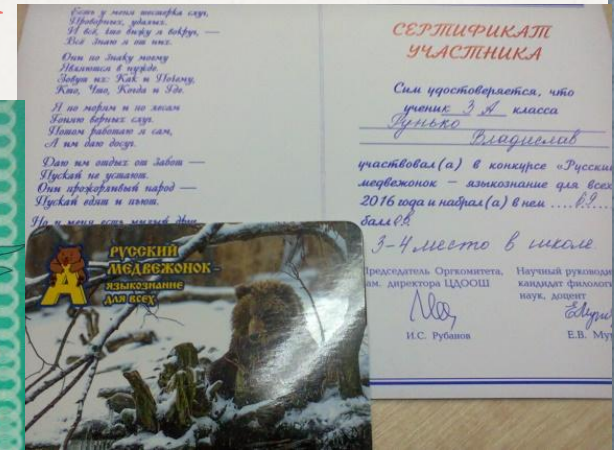 Есть у меня шестёрка слуг,
Проворных, удалых.
И всё, что вижу я вокруг, —
Всё знаю я от них.
Они по знаку моему
Являются в нужде.
Зовут их: Как и Почему,
Кто, Что, Когда и Где.
Я по морям и по лесам
Гоняю верных слуг.
Потом работаю я сам,
А им даю досуг.
Даю им отдых от забот —
Пускай не устают.
Они прожорливый народ —
Пускай едят и пьют.
Но у меня есть милый друг
СЕРТИФИКАТ
УЧАСТНИКА
Сим удостоверяется, что
ученик 3 А класса
Гунько
Владислав
участвовал(а) в конкурсе «Русский
медвежонок – языкознание для всех
2016 года и набрал(а) в нем ..... 69
балл
3-4 место в школе
Председатель Оргкомитета,
зам. директора ЦДООШ
И.С. Рубанов
Научный руководи
кандидат филологи
наук, доцент
Е.В. Му
РУССКИЙ
МЕДВЕЖОНОК–
ЯЗЫКОЗНАНИЕ
ДЛЯ ВСЕХ